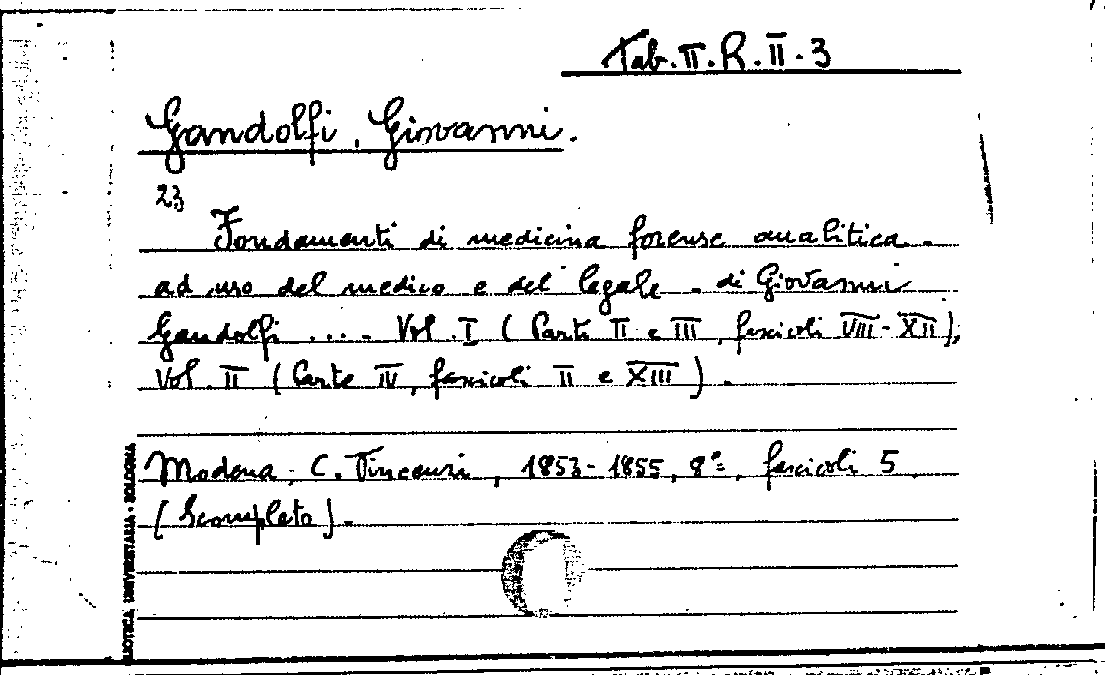 Tab. II. R. II. 3
Gandolfi, Giovanni.
23
Fondamenti di medicina forense analitica
ad uso del medico e del legale - di Giovanni
Gandolfi .... Vol. I (Parti II e III, fascicoli VIII-XII),
Vol. II (Parte IV, fascicoli II e XIII).
Modena, C. Vincenzi, 1853-1855, 8º, fascicoli 5
(Scompleto).
BLIOTECA UNIVERSITARIA - BOLOGNA